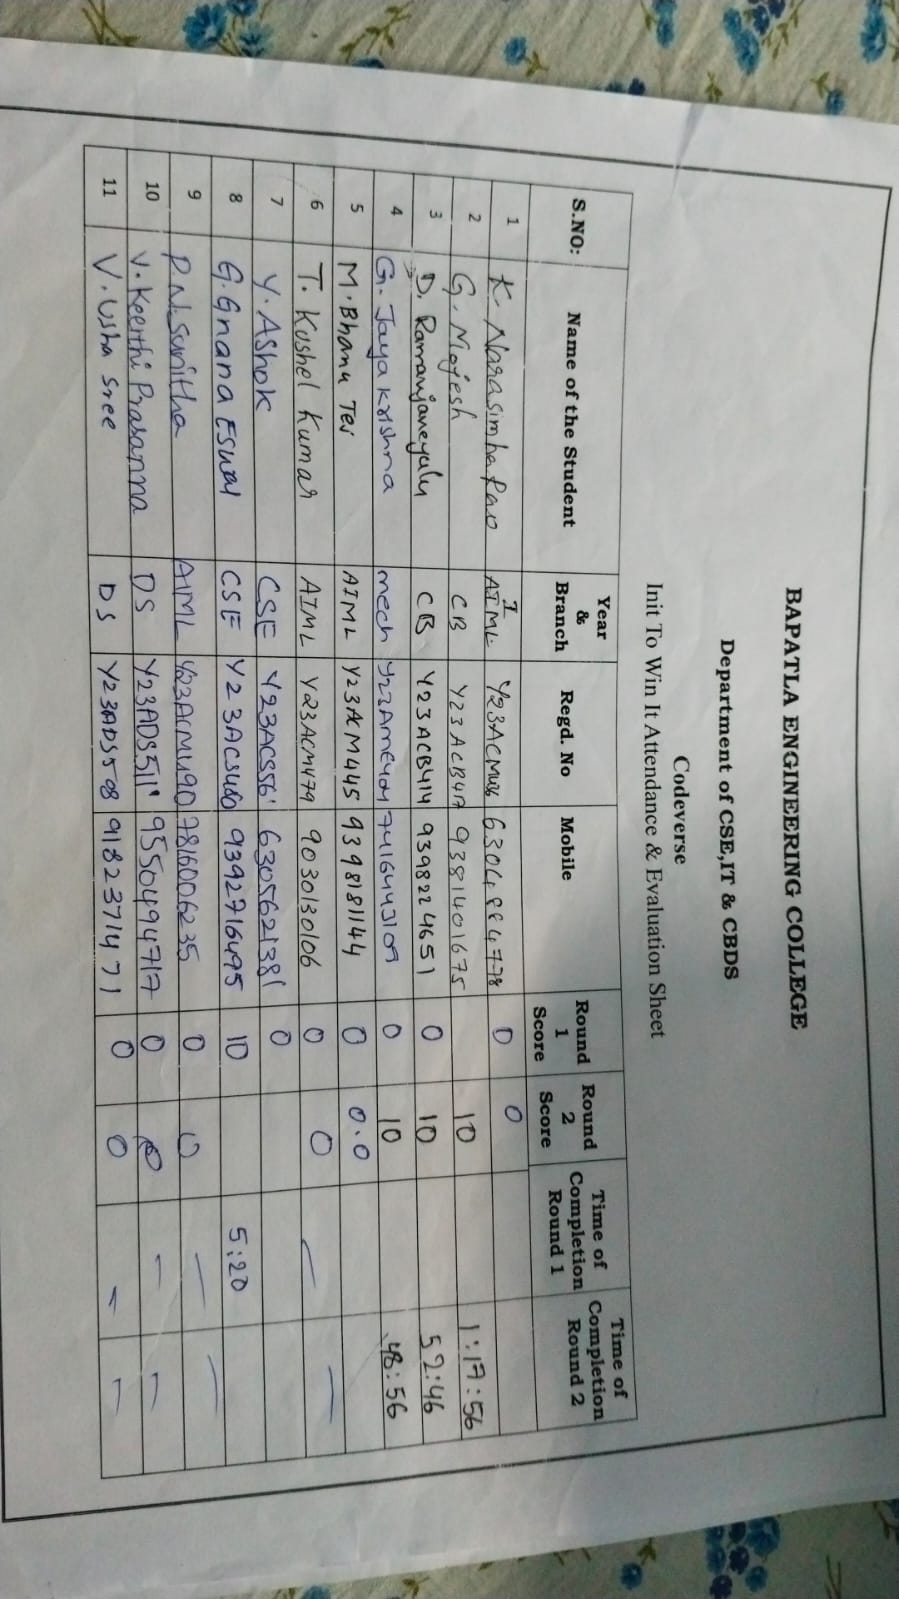 BAPATLA ENGINEERING COLLEGE
Department of CSE,IT & CBDS
Codeverse
Init To Win It Attendance & Evaluation Sheet
S.NO: Name of the Student Year & Branch Regd. No Mobile Round 1 Score Round 2 Score Time of Completion Round 1 Time of Completion Round 2
1 K. Narasimha Rao I AIML 0 0
2 G. CB Y23ACB417 9381401675 10 1:17:56
3 D. Ramanjaneyulu CB Y23ACB414 9398224651 0 10 52:46
4 G. Jaya Krishna mech 0 10 48:56
5 M. Bhanu Tej AIML Y23ACM445 9398181144 0 0.0
6 T. Kushel Kumar AIML Y23ACM479 9030130106 0 0 — —
7 Y. Ashok CSE 6305621381 0
8 G. Gnana Eswar CSE 9392716495 10 5:20
9 P.N. Sunitha AIML Y23ACM490 7816006235 0 0 — —
10 V. Keerthi Prasanna DS Y23ADS511 9550494717 0 0 — —
11 V. Usha Sree DS Y23ADS508 9182371471 0 0 — —